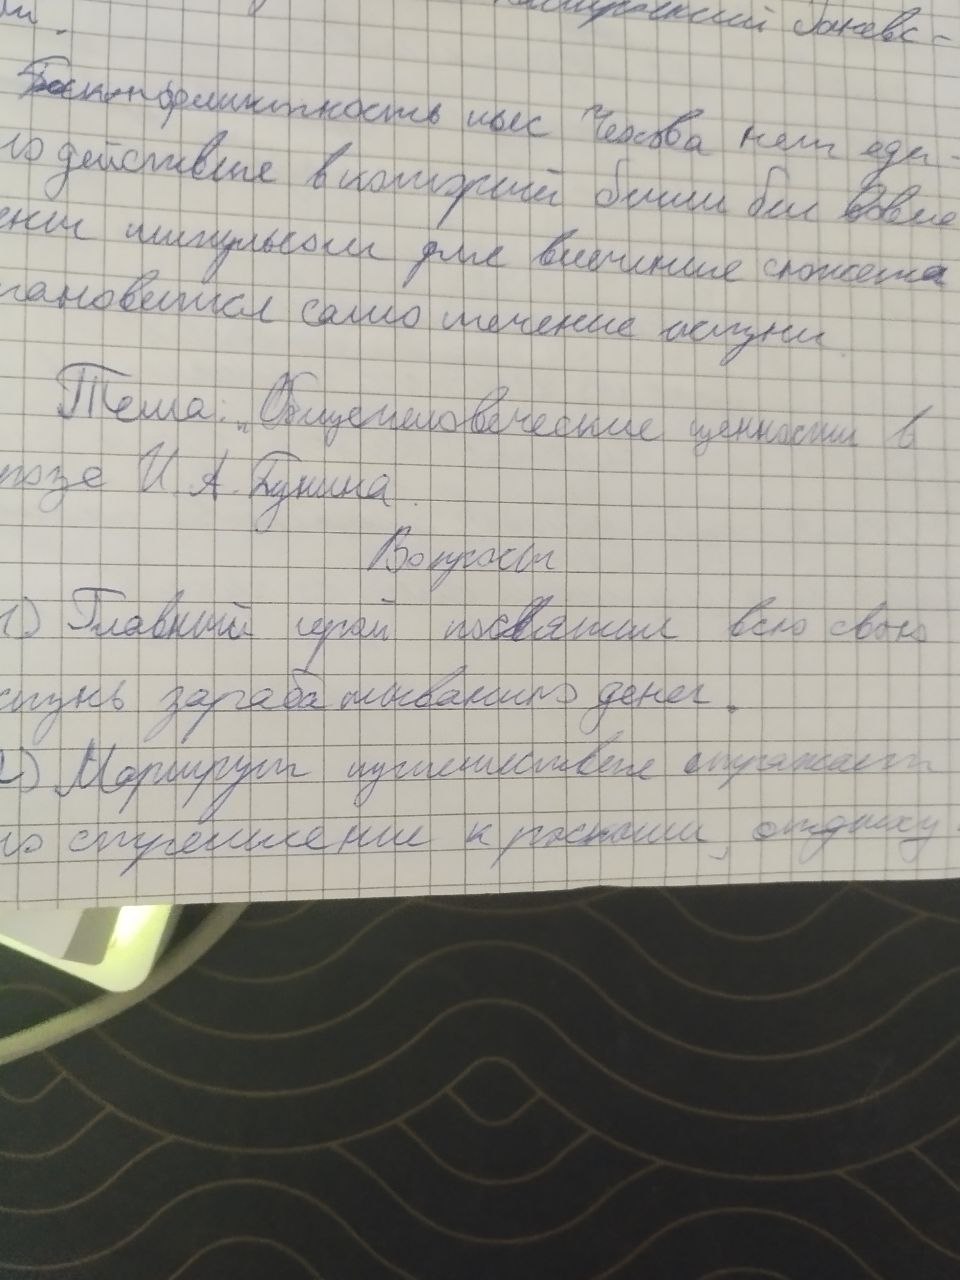 Гаевс-
Бесконфликтность пьес Чехова нет еди-
го действие в которой были бы вовле
ены импульсом для внешние сюжета
тановится само течение жизни.
Тема: „Общечеловеческие ценности в
розе И. А. Бунина.
Вопросы
1) Главный герой посвятил всю свою
жизнь зарабатыванию денег.
2) Маршрут путешествие отражает
го стремление к роскоши, отдыху